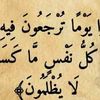 ا يَوْمًا تُرْجَعُونَ فِيهِ
كُلُّ نَفْسٍ مَّا كَسَ
لَا يُظْلَمُونَ﴾